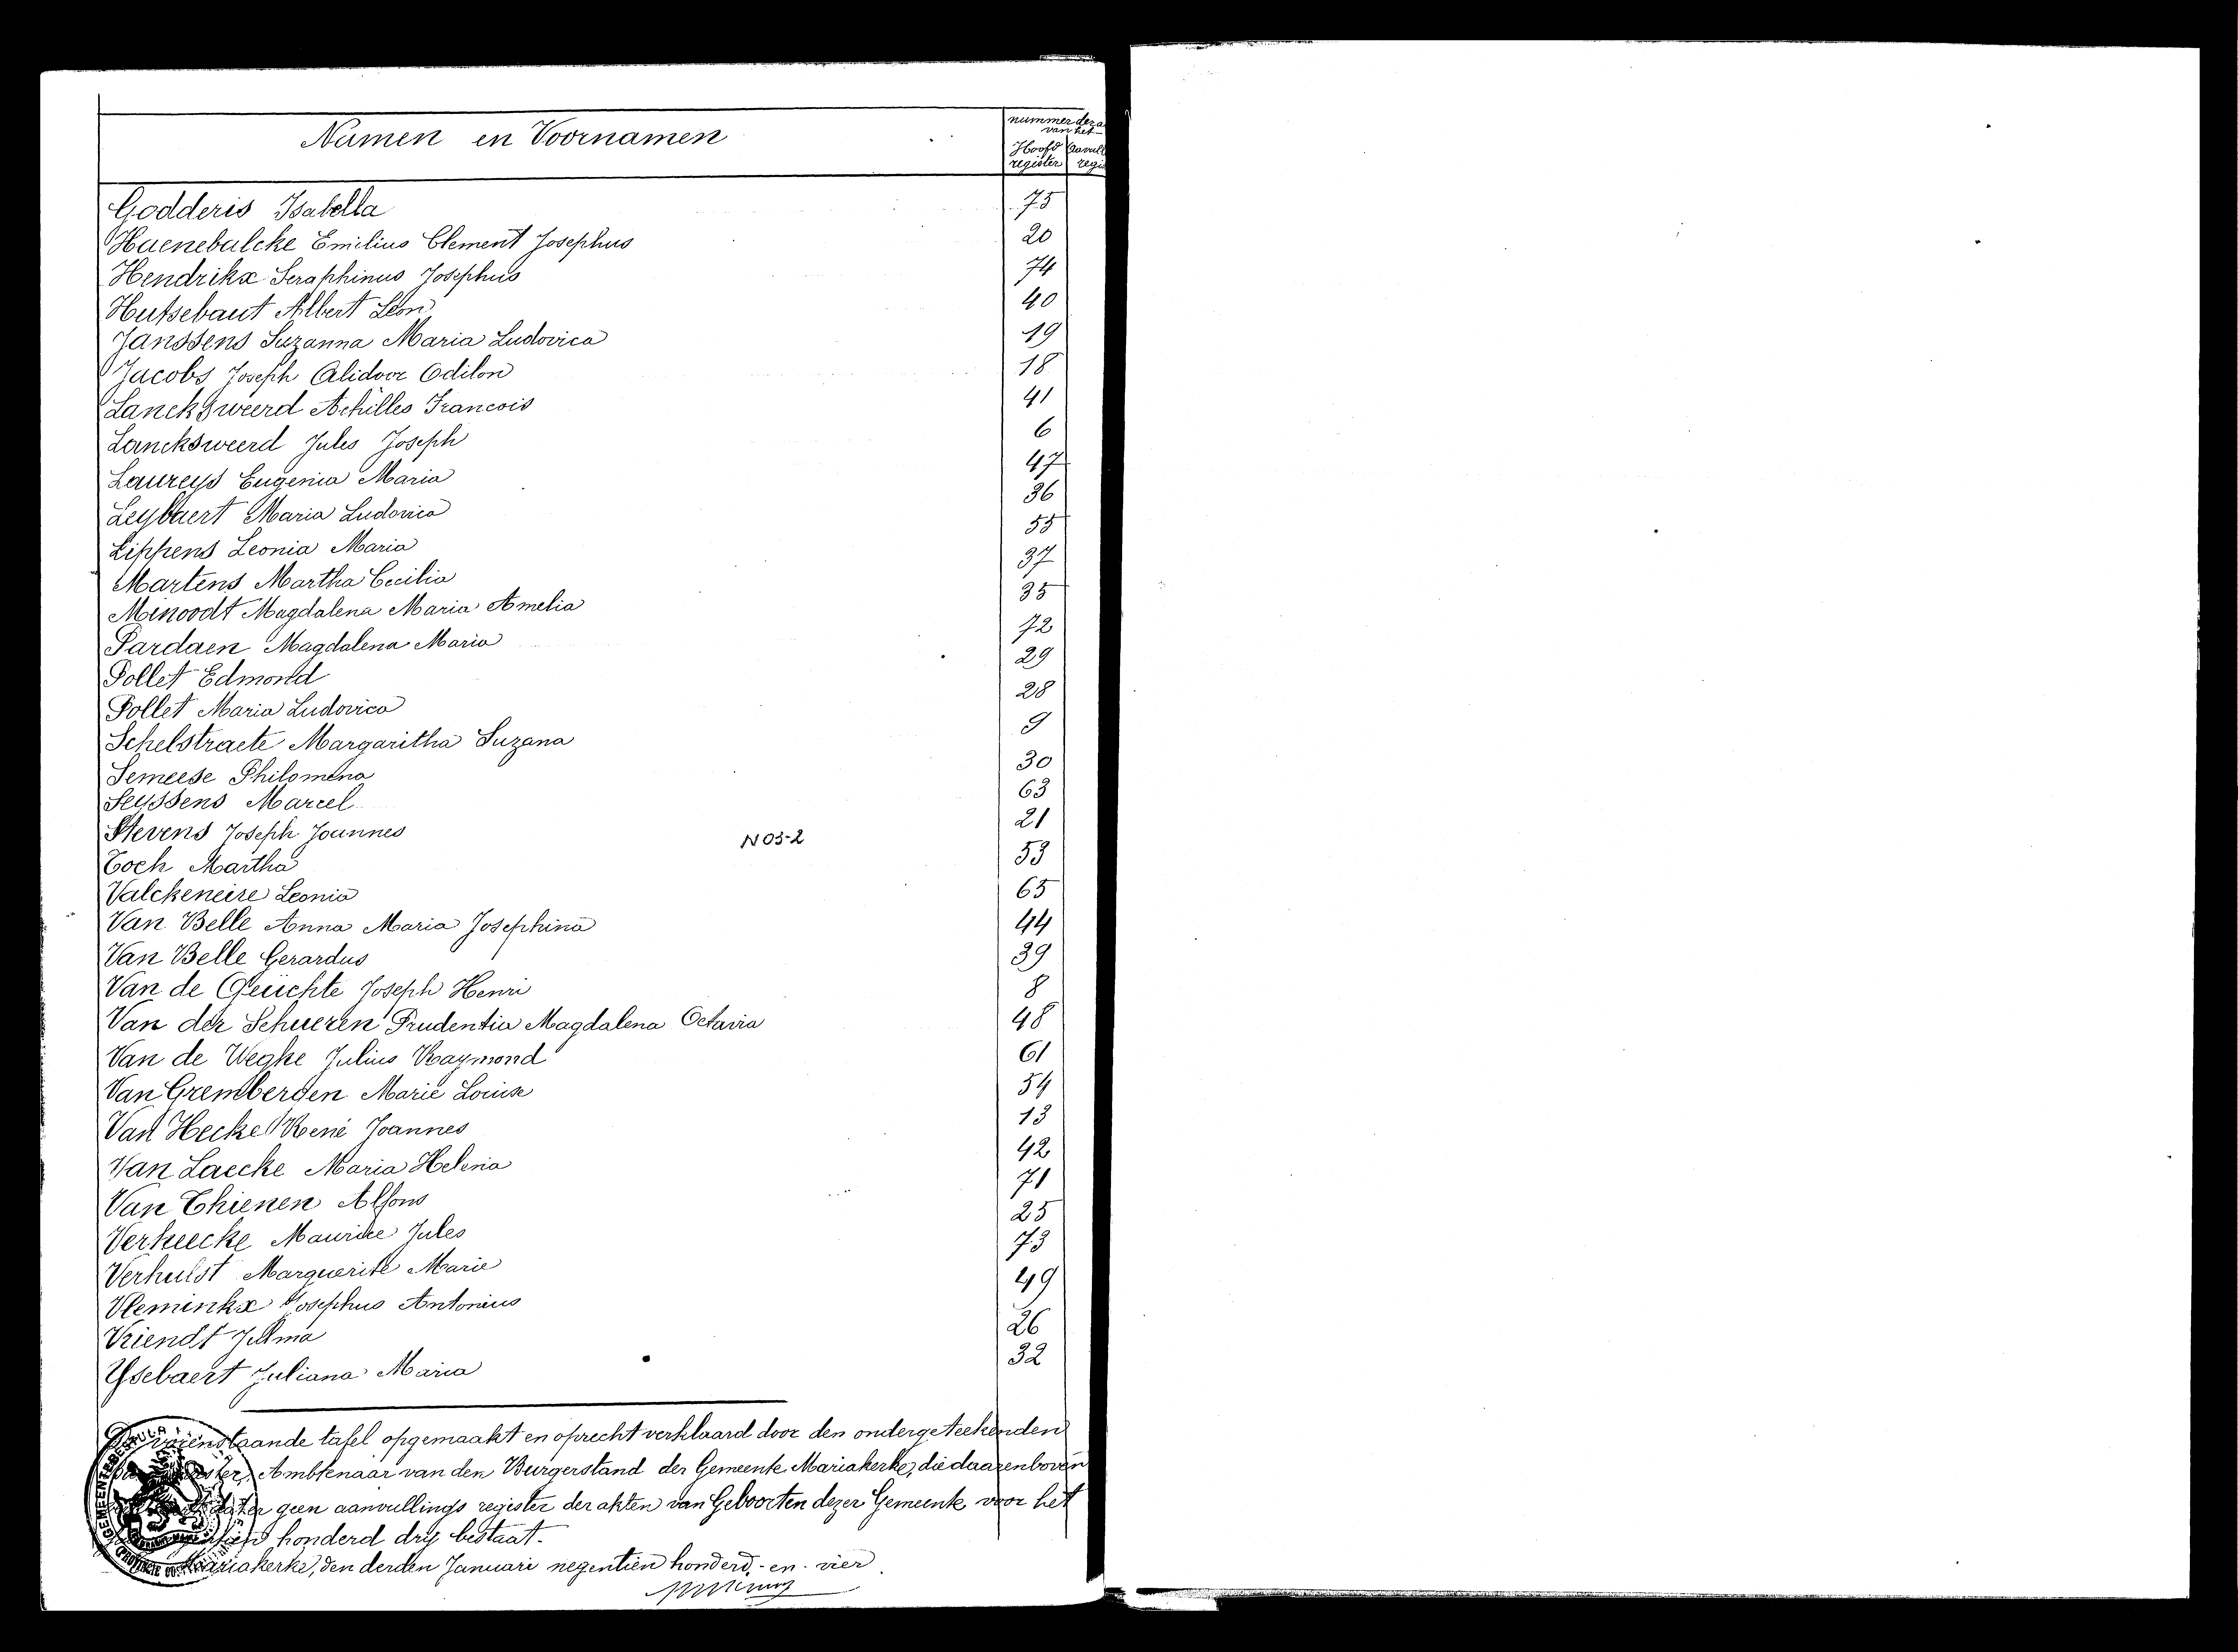 Namen en Voornamen
nummer der
van het
Hoofd register
Godderis Isabella 75
Haenebalcke Emilius Clement Josephus 20
Hendrikx Seraphinus Josephus 74
Hutsebaut Albert Leon 40
Janssens Suzanna Maria Ludovica 19
Jacobs Joseph Alidoor Odilon 18
Lancksweerd Achilles Francois 41
Lancksweerd Jules Joseph 6
Laureys Eugenia Maria 47
Leybaert Maria Ludovica 36
Lippens Leonia Maria 55
Martens Martha Cecilia 37
Minoodt Magdalena Maria Amelia 35
Pardaen Magdalena Maria 72
Pollet Edmond 29
Pollet Maria Ludovica 28
Schelstraete Margaritha Suzana 9
Semeese Philomena 30
Seyssens Marcel 63
Stevens Joseph Joannes 21
N 03-2
Toch Martha 53
Valckeneire Leonia 65
Van Belle Anna Maria Josephina 44
Van Belle Gerardus 39
Van de Geuchte Joseph Henri 8
Van der Schueren Prudentia Magdalena Octavia 48
Van de Weghe Julius Raymond 61
Van Gremberden Marie Louise 54
Van Hecke René Joannes 13
Van Laecke Maria Helena 42
Van Thienen Alfons 71
Verheecke Maurice Jules 25
Verhulst Marguerite Marie 73
Vleminkx Josephus Antonius 49
Vriendt Julma 26
Ysebaert Juliana Maria 32
tafel opgemaakt en oprecht verklaard door den ondergeteekenden
Ambtenaar van den Burgerstand der Gemeente Mariakerke, die daarenboven
geen aanvullings register der akten van Geboorten dezer Gemeente voor het
honderd dry bestaat.
Mariakerke, den derden Januari negentien honderd-en-vier